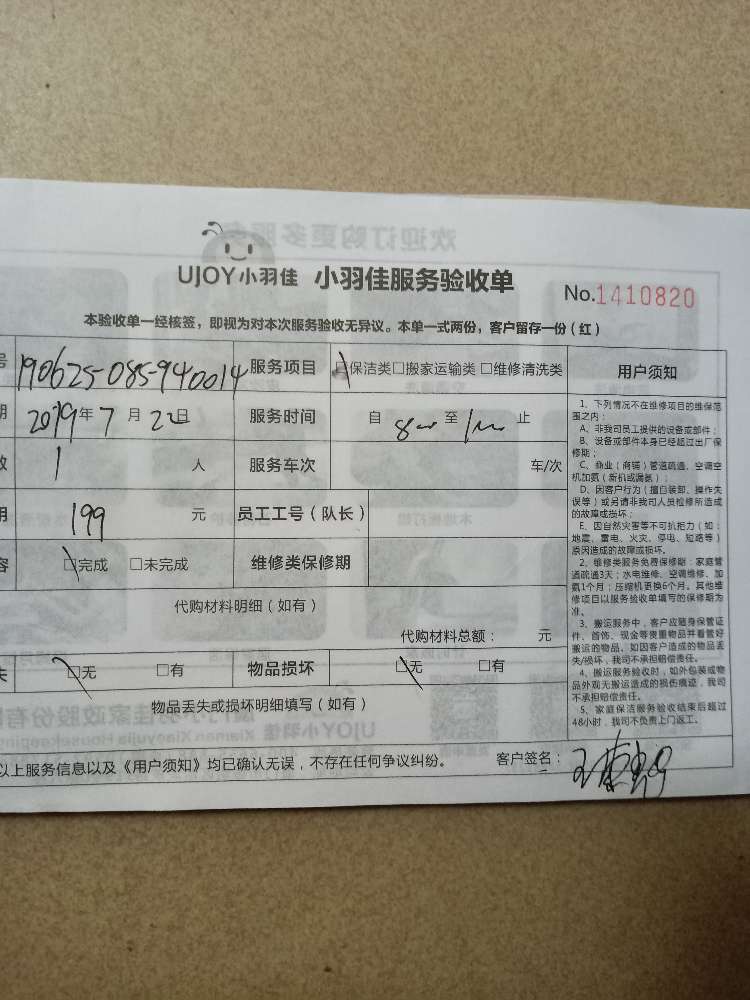 欢迎订购更多服务
UJOY小羽佳 小羽佳服务验收单 No.1410820
本验收单一经核签，即视为对本次服务验收无异议。本单一式两份，客户留存一份（红）
号 190625-085-940014 服务项目 □保洁类□搬家运输类□维修清洗类 用户须知
期 2019年7月2日 服务时间 自 至 止
数 1 人 服务车次 车/次
用 199 元 员工工号（队长）
容 □完成 □未完成 维修类保修期
代购材料明细（如有）
代购材料总额： 元
失 □无 □有 物品损坏 □无 □有
物品丢失或损坏明细填写（如有）
以上服务信息以及《用户须知》均已确认无误，不存在任何争议纠纷。 客户签名：
1、下列情况不在维修项目的维保范
围之内：
A、非我司员工提供的设备或部件；
B、设备或部件本身已经超过出厂保
修期；
C、商业（商铺）管道疏通、空调空
机加氨（新机或漏氨）；
D、因客户行为（擅自装卸、操作失
误等）或另请非我司人员检修所造成
的故障或损坏；
E、因自然灾害等不可抗拒力（如：
地震、雷电、火灾、停电、短路等）
原因造成的故障或损坏。
2、维修类服务免费保修期：家庭管
道疏通3天；水电维修、空调维修、加
氨1个月；压缩机更换6个月。其他维
修项目以服务验收单填写的保修期为
准。
3、搬运服务中，客户应随身保管证
件、首饰、现金等贵重物品并看管好
搬运的物品。如因客户造成的物品丢
失/损坏，我司不承担赔偿责任。
4、搬运服务验收时，如外包装或物
品外观无搬运造成的损伤痕迹，我司
不承担赔偿责任。
5、家庭保洁服务验收结束后超过
48小时，我司不负责上门返工。